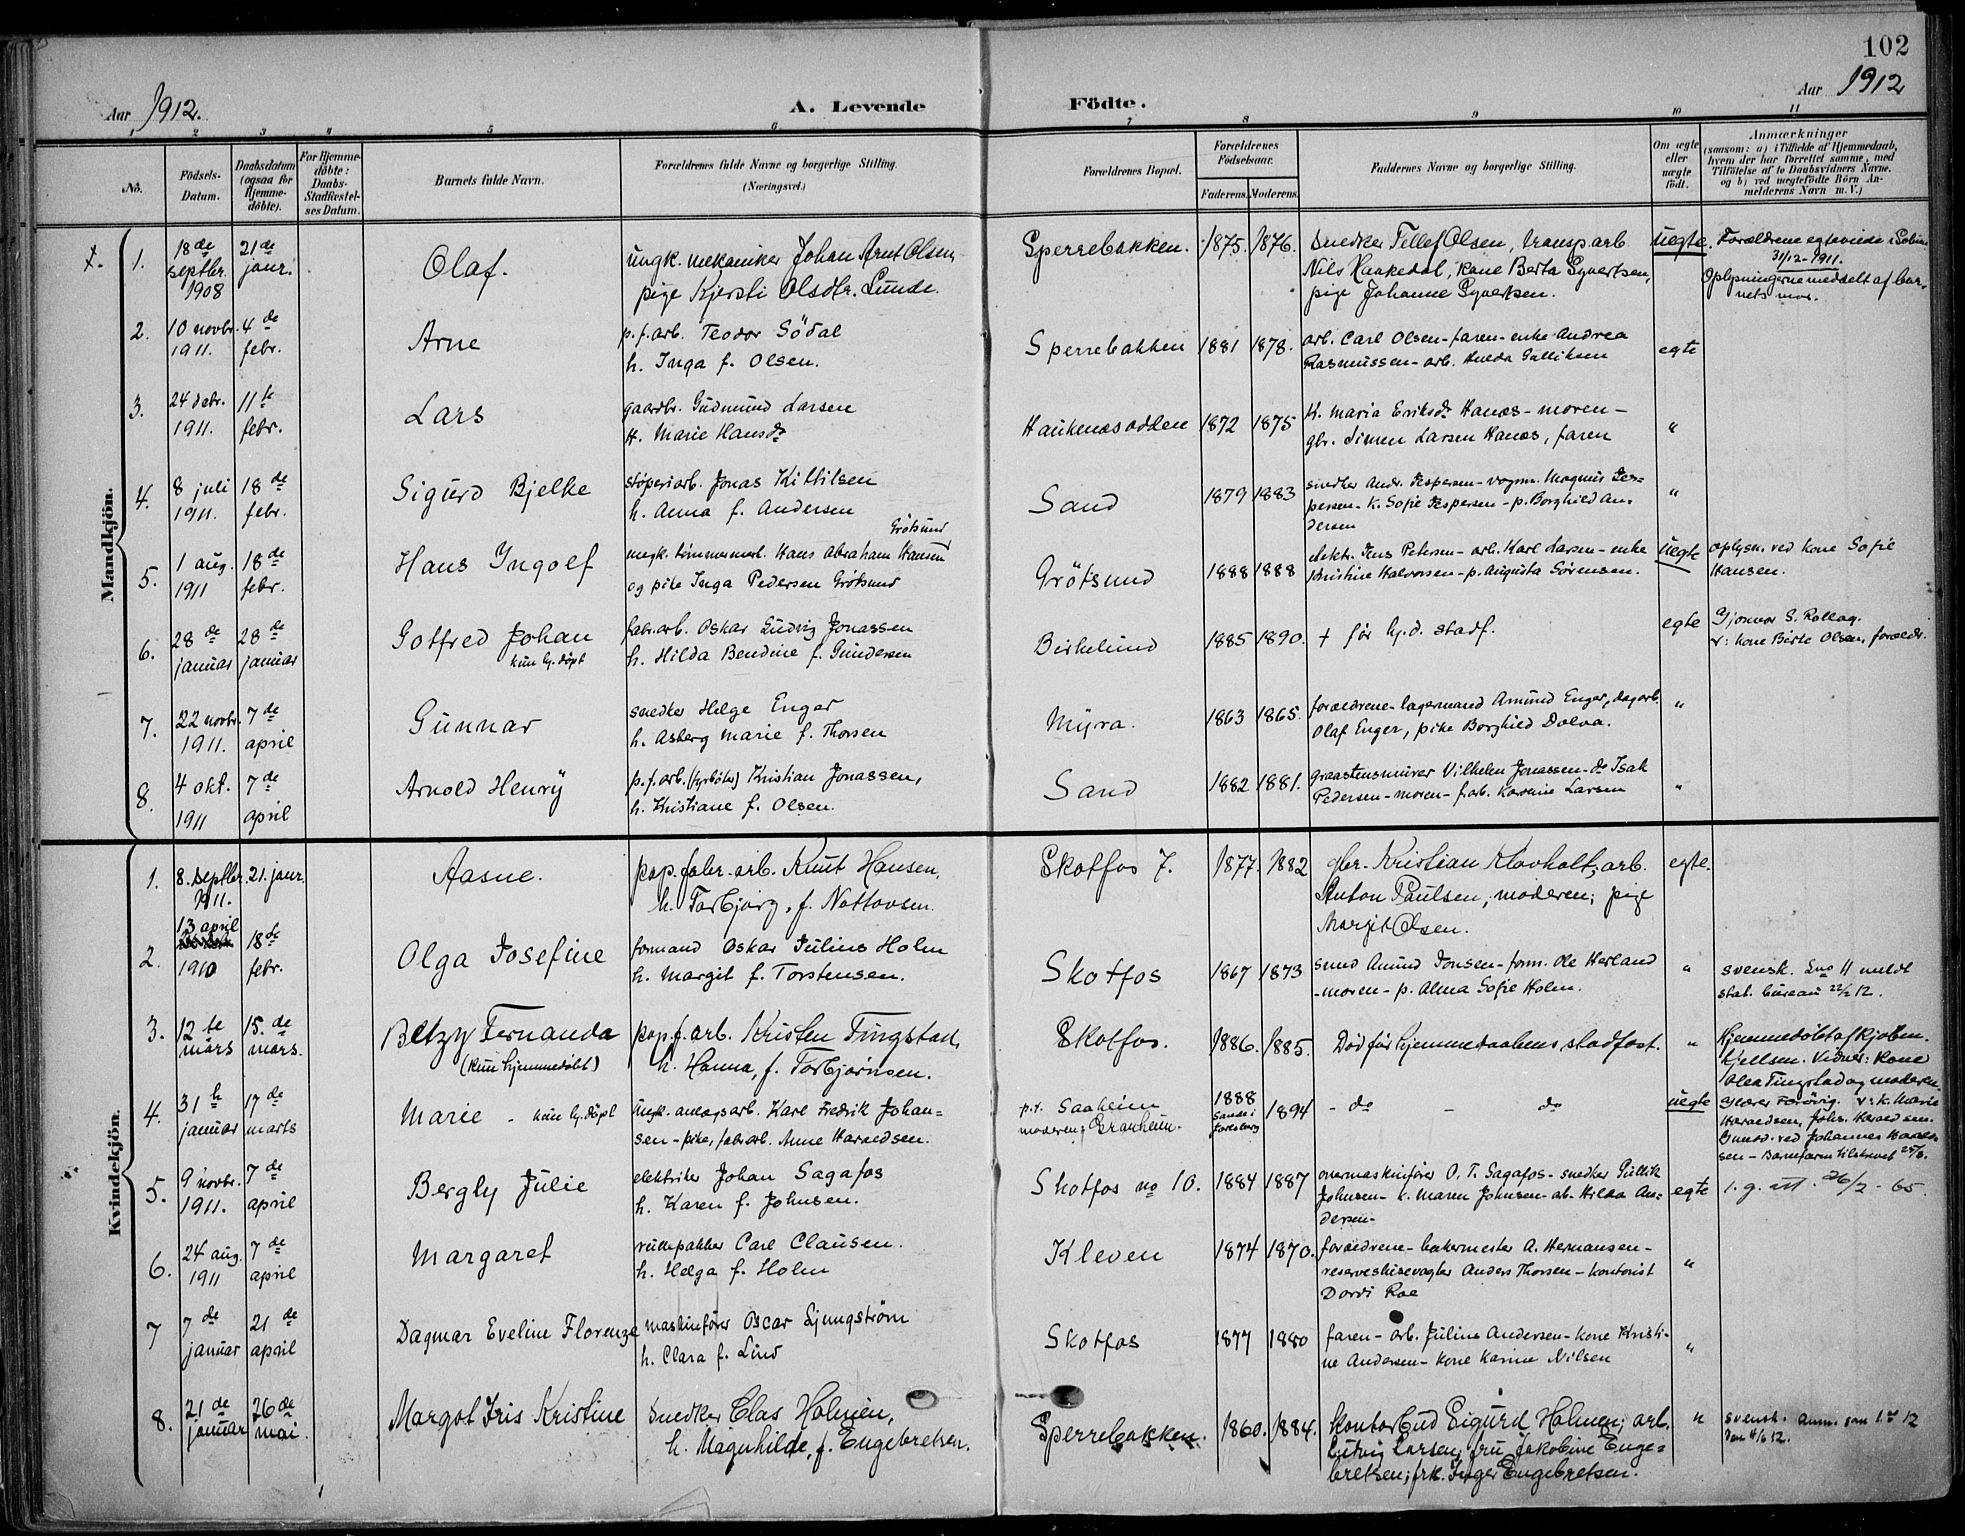 102
Aar 1912.
A. Levende
Födte.
Aar 1912
1 2 3 4 5 6 7 8 9 10 11
No.
Födsels-
Datum.
Daabsdatum
(ogsaa for
Hjemme-
döbte).
For Hjemme-
döbte:
Daabs-
Stadfæstel-
ses Datum.
Barnets fulde Navn.
Forældrenes fulde Navne og borgerlige Stilling.
(Næringsvei.)
Forældrenes Bopæl.
Forældrenes
Födselsaar.
Faderens. Moderens.
Faddernes Navne og borgerlige Stilling.
Om ægte
eller
uægte
födt.
Anmærkninger
(saasom: a) i Tilfælde af Hjemmedaab,
hvem der har forrettet samme, med
Tilföielse af to Daabsvidners Navne,
og b) ved uægtefödte Börn An-
melderens Navn m. V.)
Mandkjön.
1. 18de septbr. 1908 21de janr. Olaf.
ungk. mekaniker Johan Arnt Olsen
pige Kjersti Olsdtr. Lunde.
Sperrebakken. 1875. 1876.
Snedker Tellef Olsen, transp.arb.
Nils Haakedal, kone Berta Syvertsen,
pige Johanne Syvertsen.
uegte. Forældrene egteviede i Solum
31/12-1911.
Oplysningerne meddelt af bar-
nets mor.
2. 10 novbr. 1911. 4de febr. Arne
p.f.arb. Teodor Södal
h. Inga f. Olsen.
Sperrebakken 1881 1878.
arb. Carl Olsen - faren - enke Andrea
Rasmussen - arb.
egte
3. 24 debr. 1911. 11te febr. Lars
gaardbr. Gudmund Larsen
H. Marie Hansdr
Haukenæsodden 1872 1875
H. Maria Eriksdr Hanæs - moren -
gbr. Simen Larsen Hanæs, faren
"
4. 8 juli 1911. 18de febr. Sigurd Bjelke
støperiarb. Jonas Kittilsen
h. Anna f. Andersen
Sand 1879 1883
snedker Andr. Jespersen - vognm. Magnus Jes-
persen - k. Sofie Jespersen - p. Borghild An-
dersen
"
5. 1 aug. 1911 18de febr. Hans Ingolf
Grötsund
ungk. tømmermarb. Hans Abraham Hansen
og pike Inga Pedersen Grötsund
Grötsund 1888 1888
elektr. Jens Petersen - arb. Karl Larsen - enke
Kristine Halvorsen - p. Augusta Sörensen.
uegte oplysn. ved kone Sofie
Hansen.
6. 28de januar 28de januar Gotfred Johan
kun hj. döpt
fabr.arb. Oskar Ludvig Jonassen
h. Hilda Bendine f. Gundersen
Birkelund 1885 1890.
† før hj.d. stadf.
egte Gjormor S. Rollag.
v: kone Birte Olsen, foreldr.
7. 22 novbr. 1911. 7de april Gunnar
snedker Helge Enger
h. Asberg Marie f. Thorsen
Myra. 1863 1865.
foreldrene - lagermand Amund Enger, dagarb.
Olaf Enger, pike Borghild Dolva.
"
8. 4 okt. 1911 7de april Arnold Henry
p.f.arb. (fyrböter) Kristian Jonassen,
h. Kristiane f. Olsen.
Sand 1882 1881.
graastensmurer Vilhelm Jonassen - do Isak
Pedersen - moren - f.arb. Karoline Larsen
"
Kvindekjön.
1. 8. septbr. 1911. 21. janr. Aasne.
pap.fabr.arb. Knut Hansen,
h. Torbjørg, f. Nottovsen.
Skotfos 7. 1877. 1882
gbr. Kristian Klovholt, arb.
Anton Paulsen, moderen; pige
Margit Olsen.
egte.
2. 13 april 1910 18de febr. Olga Josefine
formand Oskar Julius Holm
h. Margit f. Torstensen.
Skotfos 1867 1873
smed Amund Jonsen - form. Ole Herland
- moren - p. Alma Sofie Holm.
" svensk. Sno 11 meldt
stat. bureau 22/2 12.
3. 12te mars 15.de mars. Betzy Fernanda
(kun hjemmedöbt)
pap.f.arb. Kristen Tingstad,
h. Hanna, f. Torbjørnsen.
Skotfos. 1886. 1885.
Död før hjemmedaabens stadfæst.
" Hjemmedöbt af
Kjellsen. Vidner: Kone
Olea Tingstad og moderen.
4. 31te januar 17de marts Marie - kun hj. döpt
Ungk. anlægsarb. Karl Fredrik Johan-
sen - pike, fabr.arb. Anne Haraldsen.
p.t. Saaheim
moderen: Granheim. 1888
Sande i Jarlsberg 1894
- do - do
uegte
v: k. Marie
Haraldsen, Johs. Haraldsen.
ved Johannes Harald-
sen -
5. 9 novbr. 1911. 7de april Bergly Julie
elektriker Johan Sagafos
h. Karen f. Johnsen.
Skotfos no 10. 1884 1887
overmaskinfører O. T. Sagafos - snedker Gullik
Johnsen - k. Maren Johnsen - ab. Hilda An-
dersen -
egte l. g. att. 26/2 - 65.
6. 24 aug. 1911 7de april Margaret
rullepakker Carl Clausen.
h. Helga f. Holm
Kleven 1874 1870.
foreldrene - bakermester A. Hermansen -
Anders Thorsen - kontorist
Dordi Roe
"
7 7de januar 21de april Dagmar Eveline Florenze
maskinfører Oscar Ljungström
h. Clara f. Lind
Skotfos 1877 1880
faren - arb. Julius Andersen - kone Kristi-
ne Andersen - kone Karine Nilsen
"
8. 21de januar 26de mai. Margot Iris Kristine
Snedker Clas Holmén,
h. Magnhilde, f. Engebretsen.
Sperrebakken. 1860. 1884.
Kontorbud Sigurd Holmen; arb.
Ludvig Larsen; fru Jakobine Enge-
bretsen; frk. Inger Engebretsen.
" svensk. anm. som 1. 12
den 4/6 12.